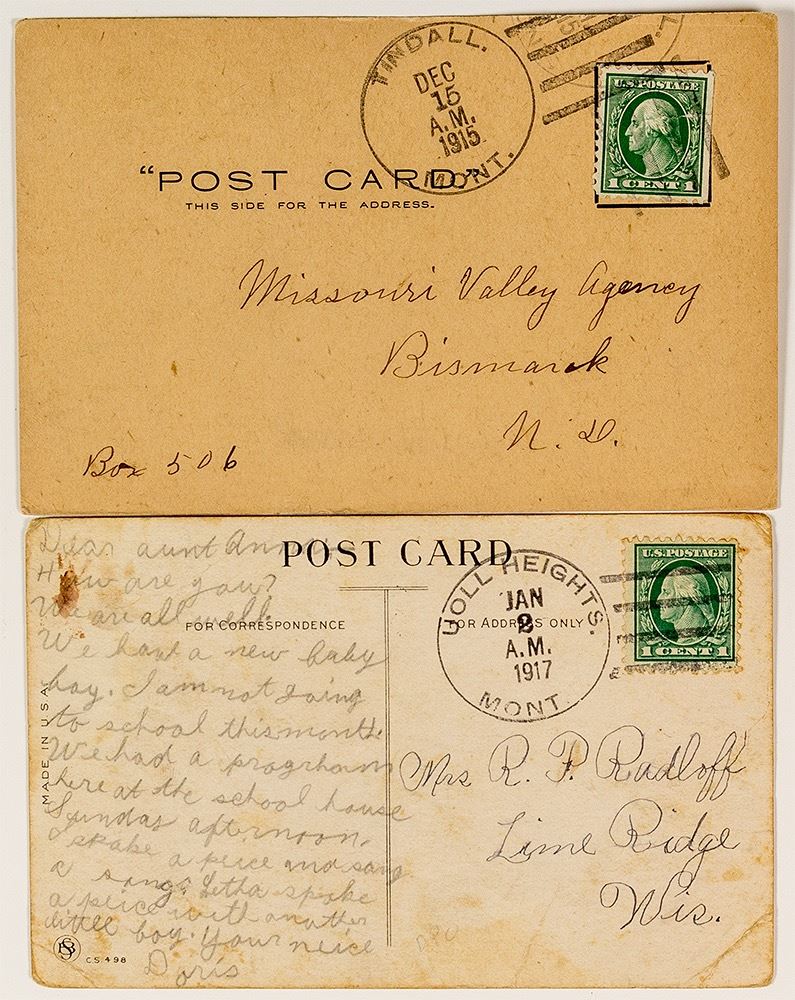 TINDALL.
DEC
15
A.M.
1915
MONT.
U.S. POSTAGE
1 CENT 1
"POST CARD"
THIS SIDE FOR THE ADDRESS.
Missouri Valley Agency
Bismarck
N. D.
Box 506
POST CARD
FOR CORRESPONDENCE
FOR ADDRESS ONLY
MADE IN U.S.A.
Dear aunt Anna
How are you?
We are all well.
We have a new baby
boy. I am not going
to school this month.
We had a progrham
here at the school house
Sunday afternoon.
I spake a peice and sang
a song. Letha spoke
a peice with another
little boy. Your neice
Doris
C.S. 498
HEIGHTS.
JAN
2
A.M.
1917
MONT.
U.S. POSTAGE
1 CENT 1
Mrs R. F. Radloff
Lime Ridge
Wis.